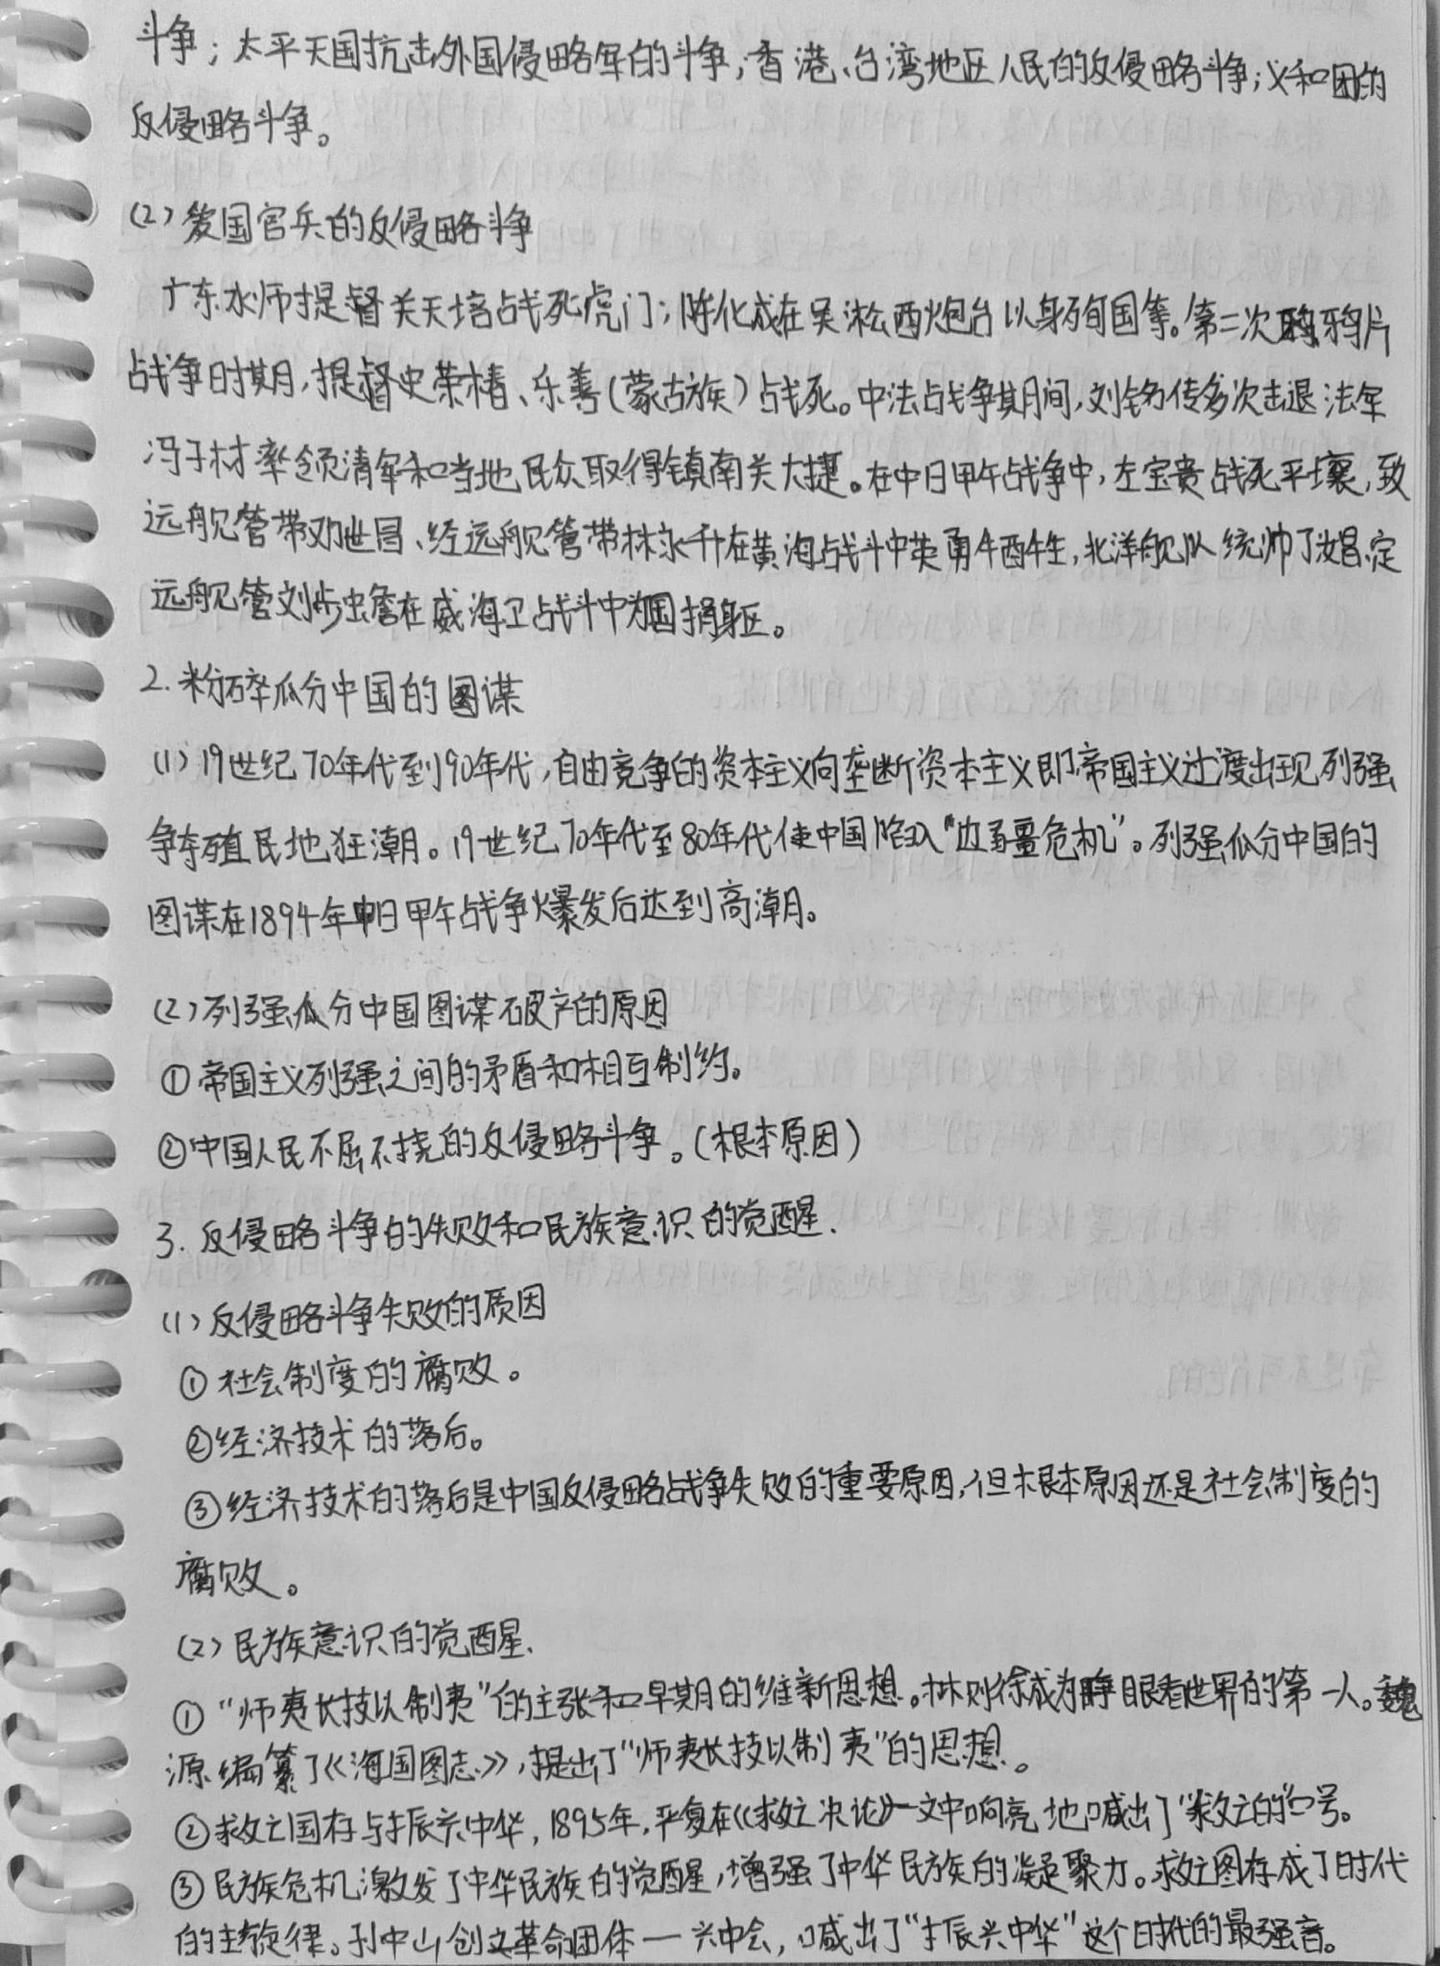 斗争；太平天国抗击外国侵略军的斗争；香港、台湾地区人民的反侵略斗争；义和团的
反侵略斗争。
(2) 爱国官兵的反侵略斗争
广东水师提督关天培战死虎门；陈化成在吴淞西炮台以身殉国等。第二次鸦片
战争时期，提督史荣椿、乐善（蒙古族）战死。中法战争期间，刘铭传多次击退法军
冯子材率领清军和当地民众取得镇南关大捷。在中日甲午战争中，左宝贵战死平壤，致
远舰管带邓世昌、经远舰管带林永升在黄海战斗中英勇牺牲，北洋舰队统帅丁汝昌、定
远舰管刘步蟾在威海卫战斗中为国捐躯。
2. 粉碎瓜分中国的图谋
(1) 19世纪70年代到90年代，自由竞争的资本主义向垄断资本主义即帝国主义过渡出现列强
争夺殖民地狂潮。19世纪70年代至80年代使中国陷入“边疆危机”。列强瓜分中国的
图谋在1894年中日甲午战争爆发后达到高潮。
(2) 列强瓜分中国图谋破产的原因
① 帝国主义列强之间的矛盾和相互制约。
② 中国人民不屈不挠的反侵略斗争。（根本原因）
3. 反侵略斗争的失败和民族意识的觉醒.
(1) 反侵略斗争失败的原因
① 社会制度的腐败。
② 经济技术的落后。
③ 经济技术的落后是中国反侵略战争失败的重要原因，但根本原因还是社会制度的
腐败。
(2) 民族意识的觉醒.
① “师夷长技以制夷”的主张和早期的维新思想。林则徐成为睁眼看世界的第一人。魏
源编纂了《海国图志》，提出了“师夷长技以制夷”的思想。
② 救亡图存与振兴中华，1895年，严复在《救亡决论》一文中响亮地喊出了“救亡的”口号。
③ 民族危机激发了中华民族的觉醒，增强了中华民族的凝聚力。救亡图存成了时代
的主旋律。孙中山创立革命团体—兴中会，喊出了“振兴中华”这个时代的最强音。